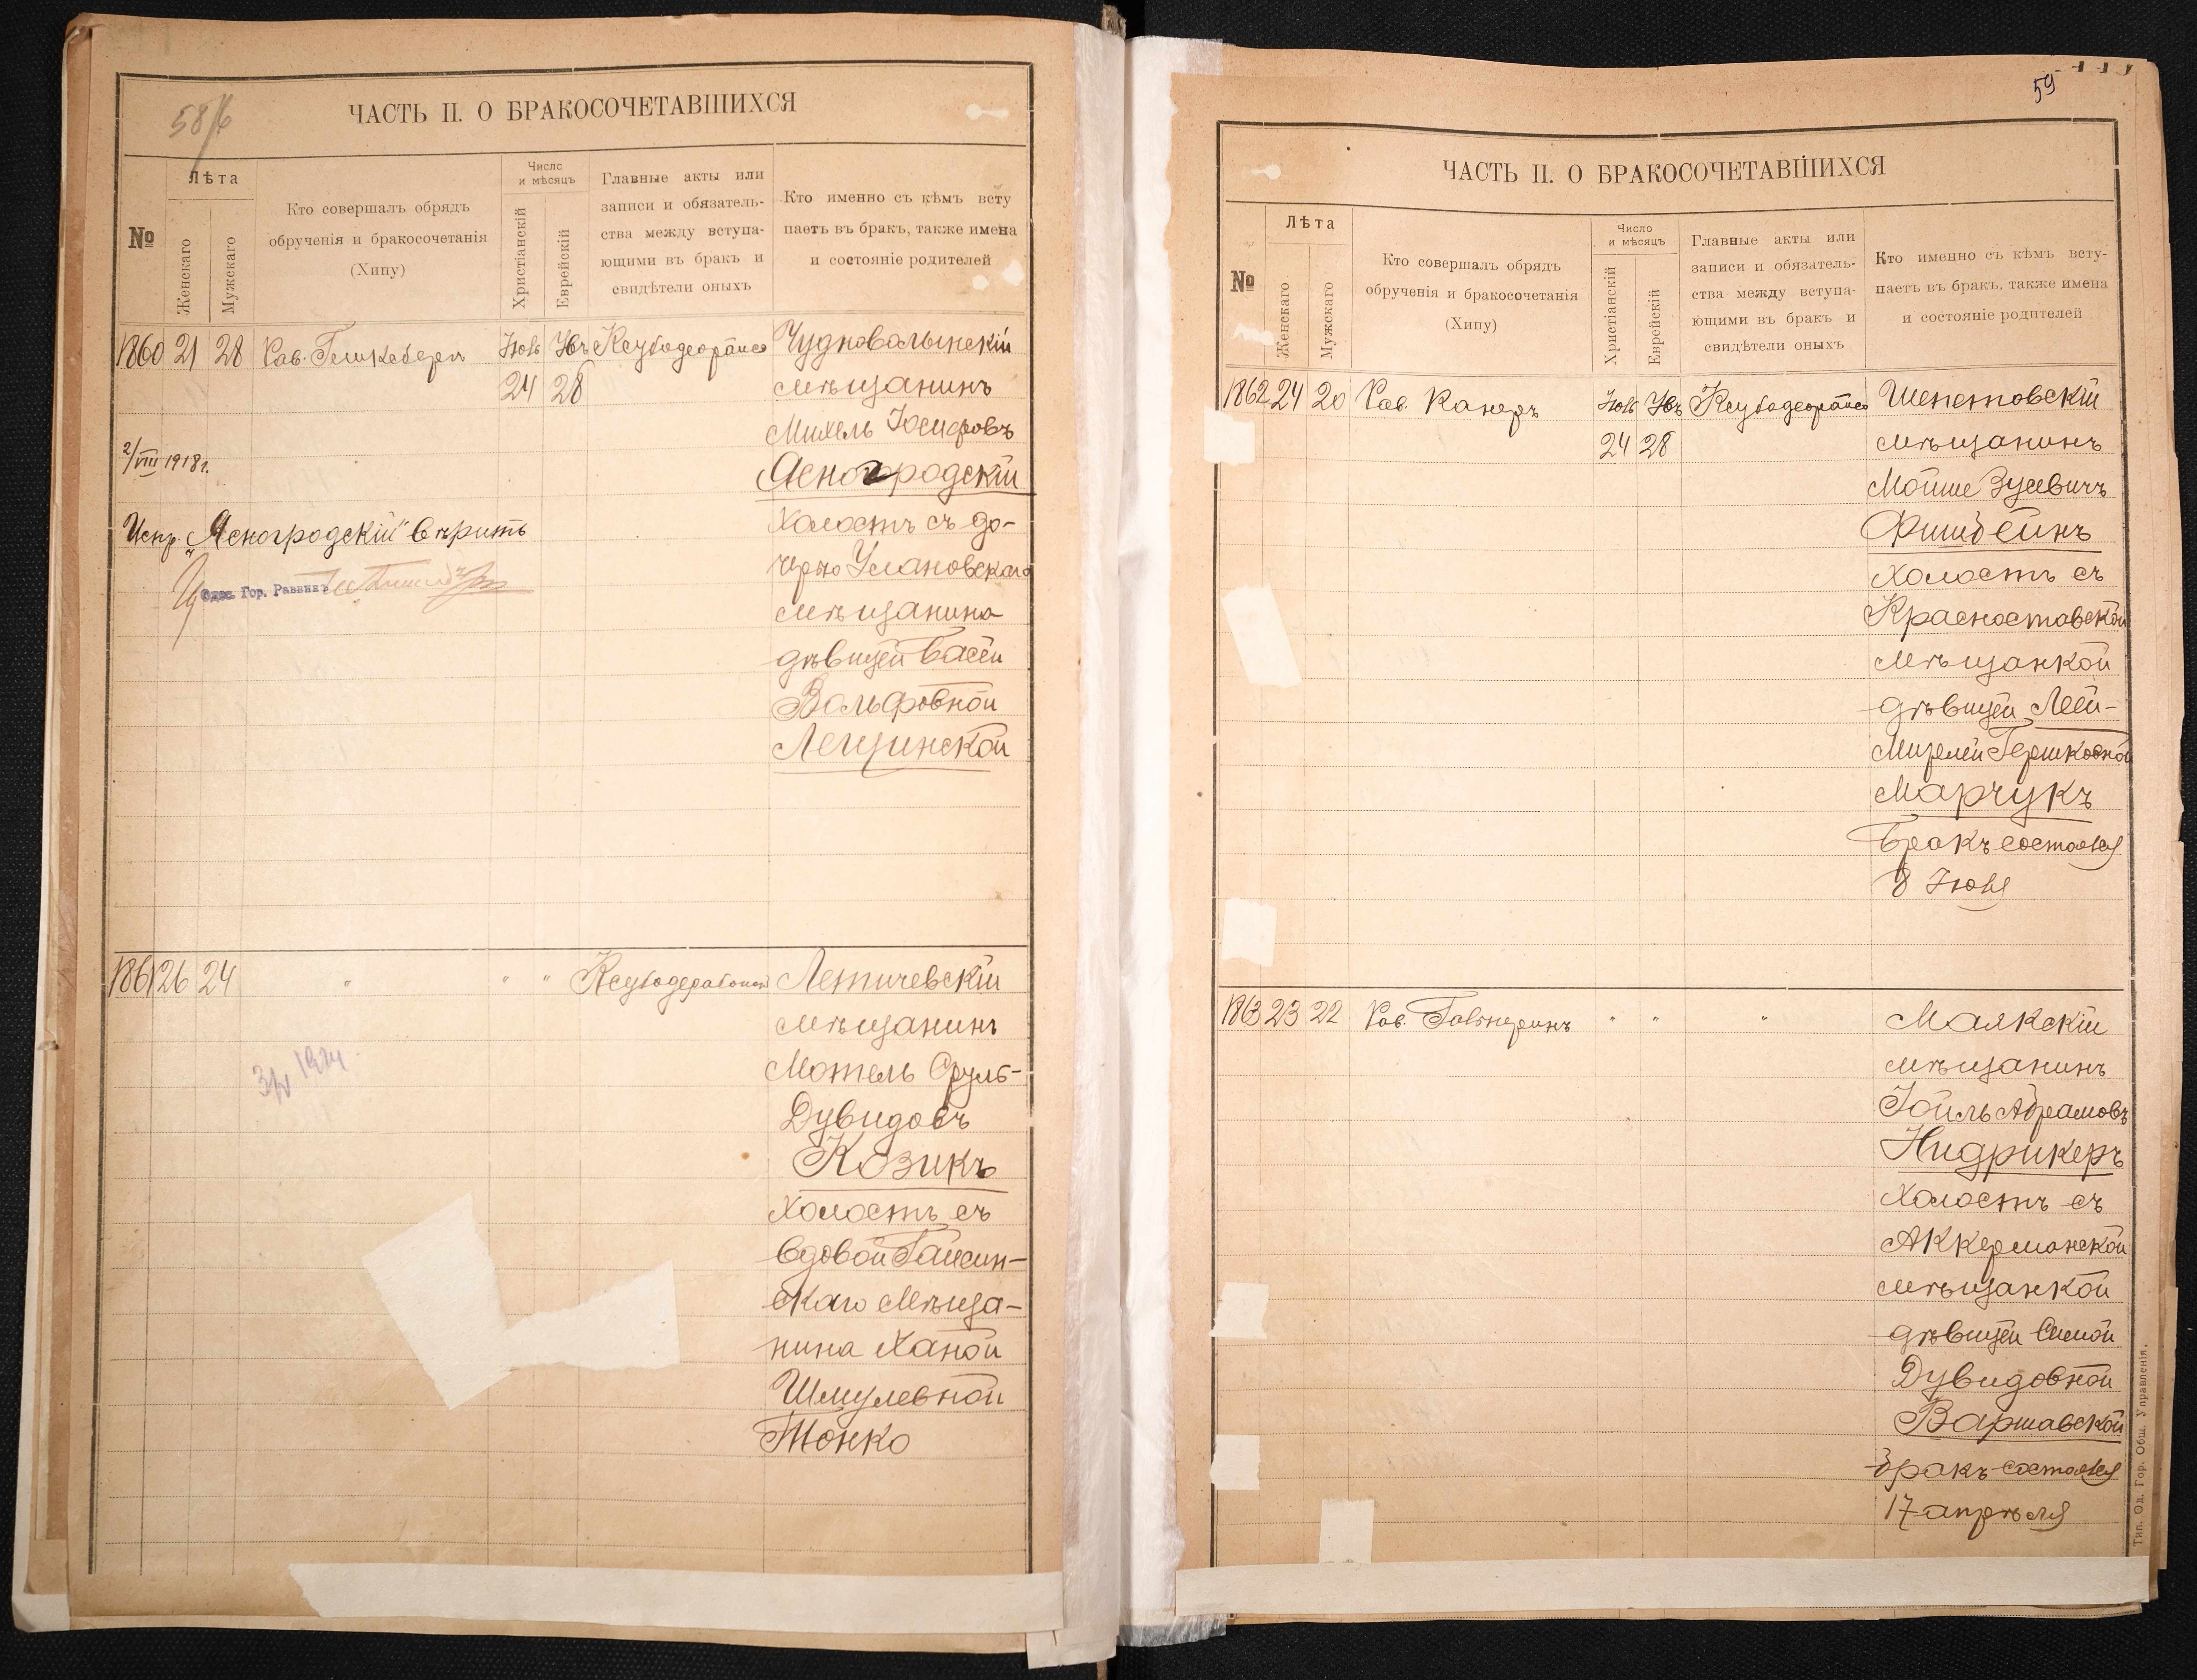 58
ЧАСТЬ II. О БРАКОСОЧЕТАВШИХСЯ
№
Лѣта
Женскаго
Мужскаго
Кто совершалъ обрядъ
обрученія и бракосочетанія
(Хипу)
Число
и мѣсяцъ
Христіанскій
Еврейскій
Главные акты или
записи и обязатель-
ства между вступа-
ющими въ бракъ и
свидѣтели оныхъ
Кто именно съ кѣмъ всту
паетъ въ бракъ, также имена
и состояніе родителей
1860 21 28 Рав.
24 28
Чудноволынскій
мѣщанинъ
Михель Іосифовъ
Ясногродскій
холостъ съ до-
черью Улановскаго
мѣщанина
дѣвицей Басей
Вольфовной
Лещинской
2/VIII 1918 г.
Испр. „Ясногродскій" вѣрить
Одес. Гор. Раввинъ
1861 26 24 " " "
Летичевскій
мѣщанинъ
Мотель Сруль-
Дувидовъ
Козикъ
холостъ съ
вдовой Гайсин-
скаго мѣща-
нина Ханой
Шмулевной
Тонко
1924
59
ЧАСТЬ II. О БРАКОСОЧЕТАВШИХСЯ
№
Лѣта
Женскаго
Мужскаго
Кто совершалъ обрядъ
обрученія и бракосочетанія
(Хипу)
Число
и мѣсяцъ
Христіанскій
Еврейскій
Главные акты или
записи и обязатель-
ства между вступа-
ющими въ бракъ и
свидѣтели оныхъ
Кто именно съ кѣмъ всту-
паетъ въ бракъ, также имена
и состояніе родителей
1862 24 20 Рав. Канеръ
24 28
Шепетовскій
мѣщанинъ
Мойше Зусевичъ
Фишбейнъ
холостъ съ
Красноставской
мѣщанкой
дѣвицей Леей-
Мирелей Гершковной
Марчукъ
Бракъ состоялся
8 Іюня
1863 23 22 Рав. Гальперинъ " " "
Маякскій
мѣщанинъ
Іойль Абрамовъ
Нидрикеръ
холостъ съ
Аккерманской
мѣщанкой
дѣвицей Симой
Дувидовной
Варшавской
бракъ состоялся
17 апрѣля
Тип. Од. Гор. Общ. Управленія.